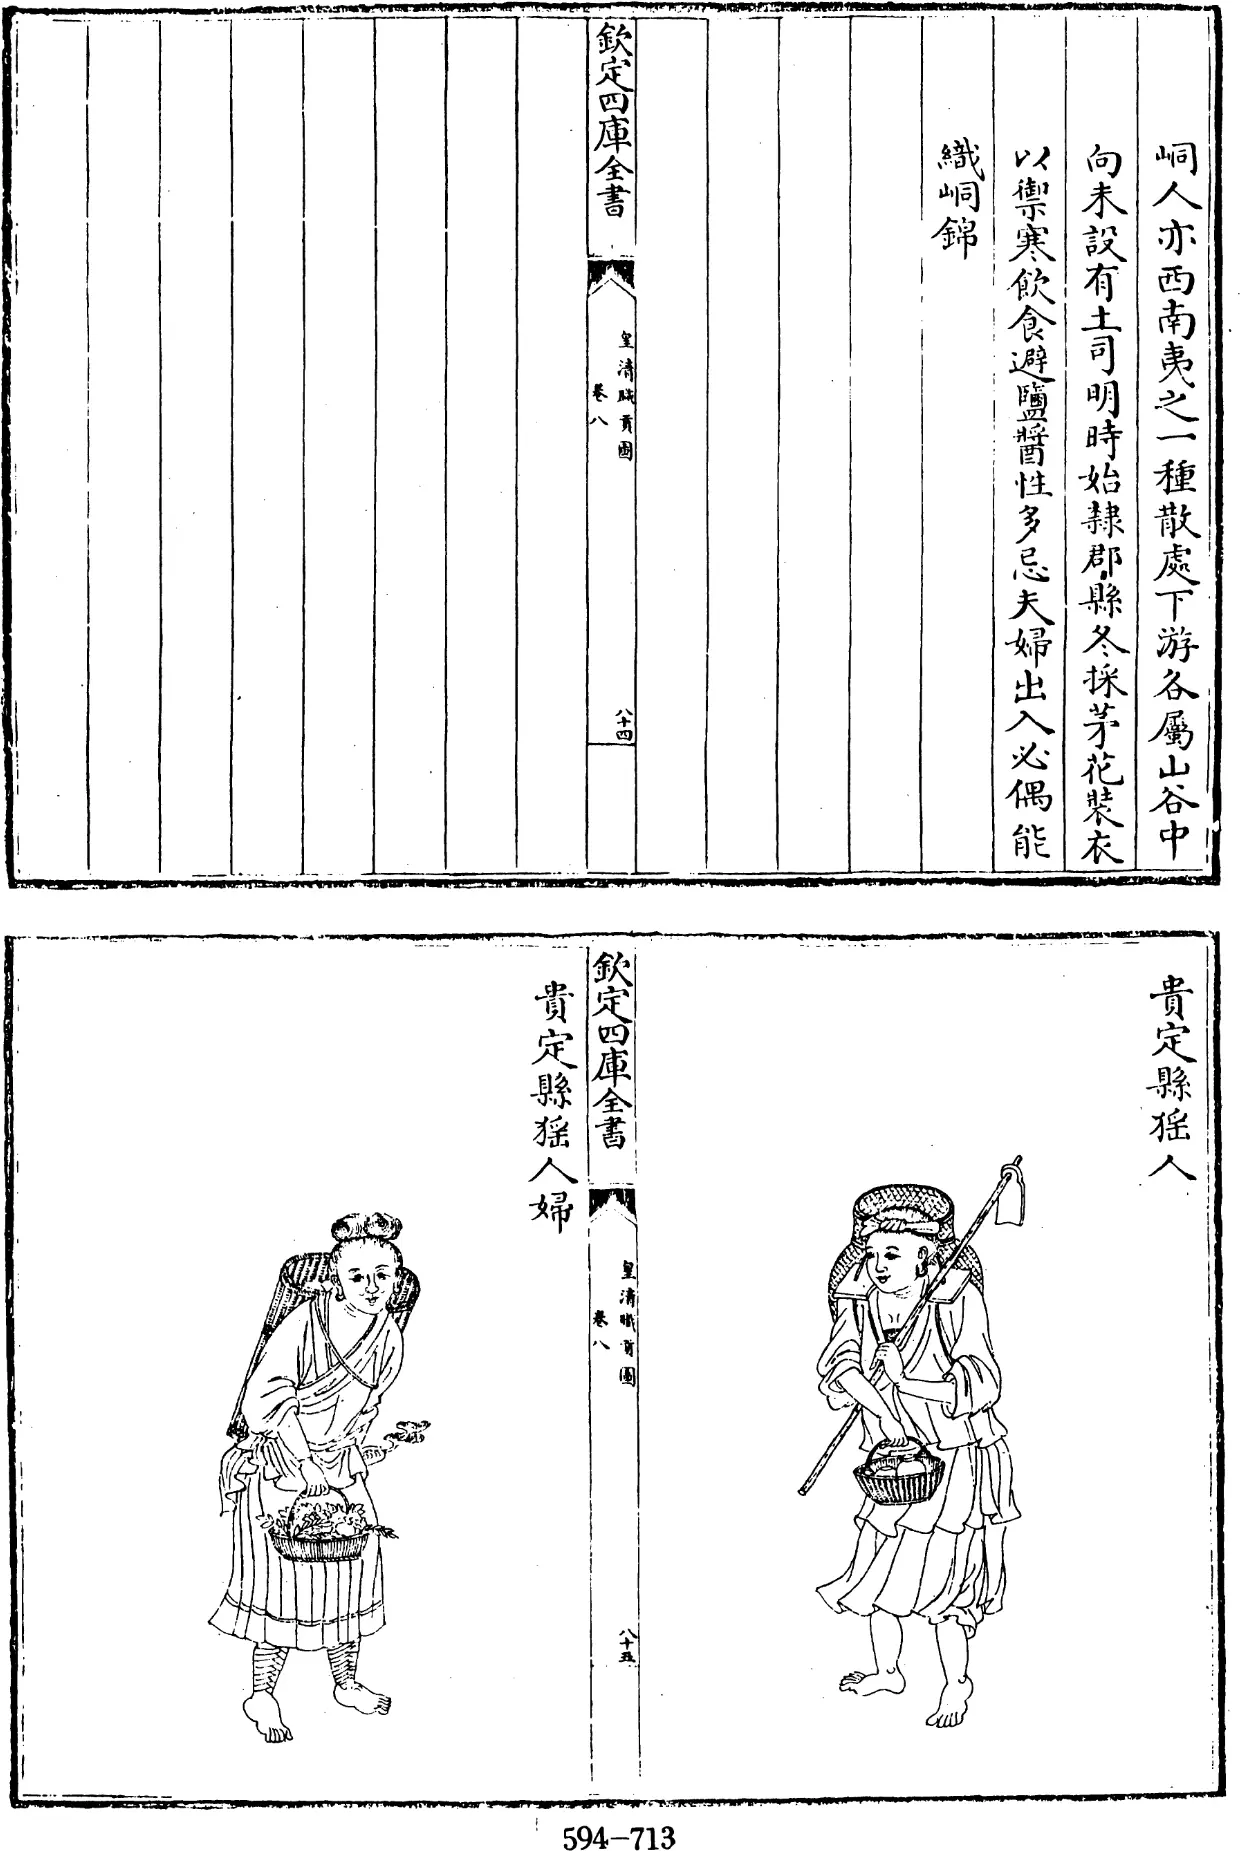 峒人亦西南夷之一種散處下游各屬山谷中
向未設有土司明時始隸郡縣冬採茅花裝衣
以禦寒飲食避鹽醬性多忌夫婦出入必偶能
織峒錦
欽定四庫全書
皇清職貢圖
卷八
八十四
貴定縣猺人
欽定四庫全書
皇清職貢圖
卷八
八十五
貴定縣猺人婦
594-713